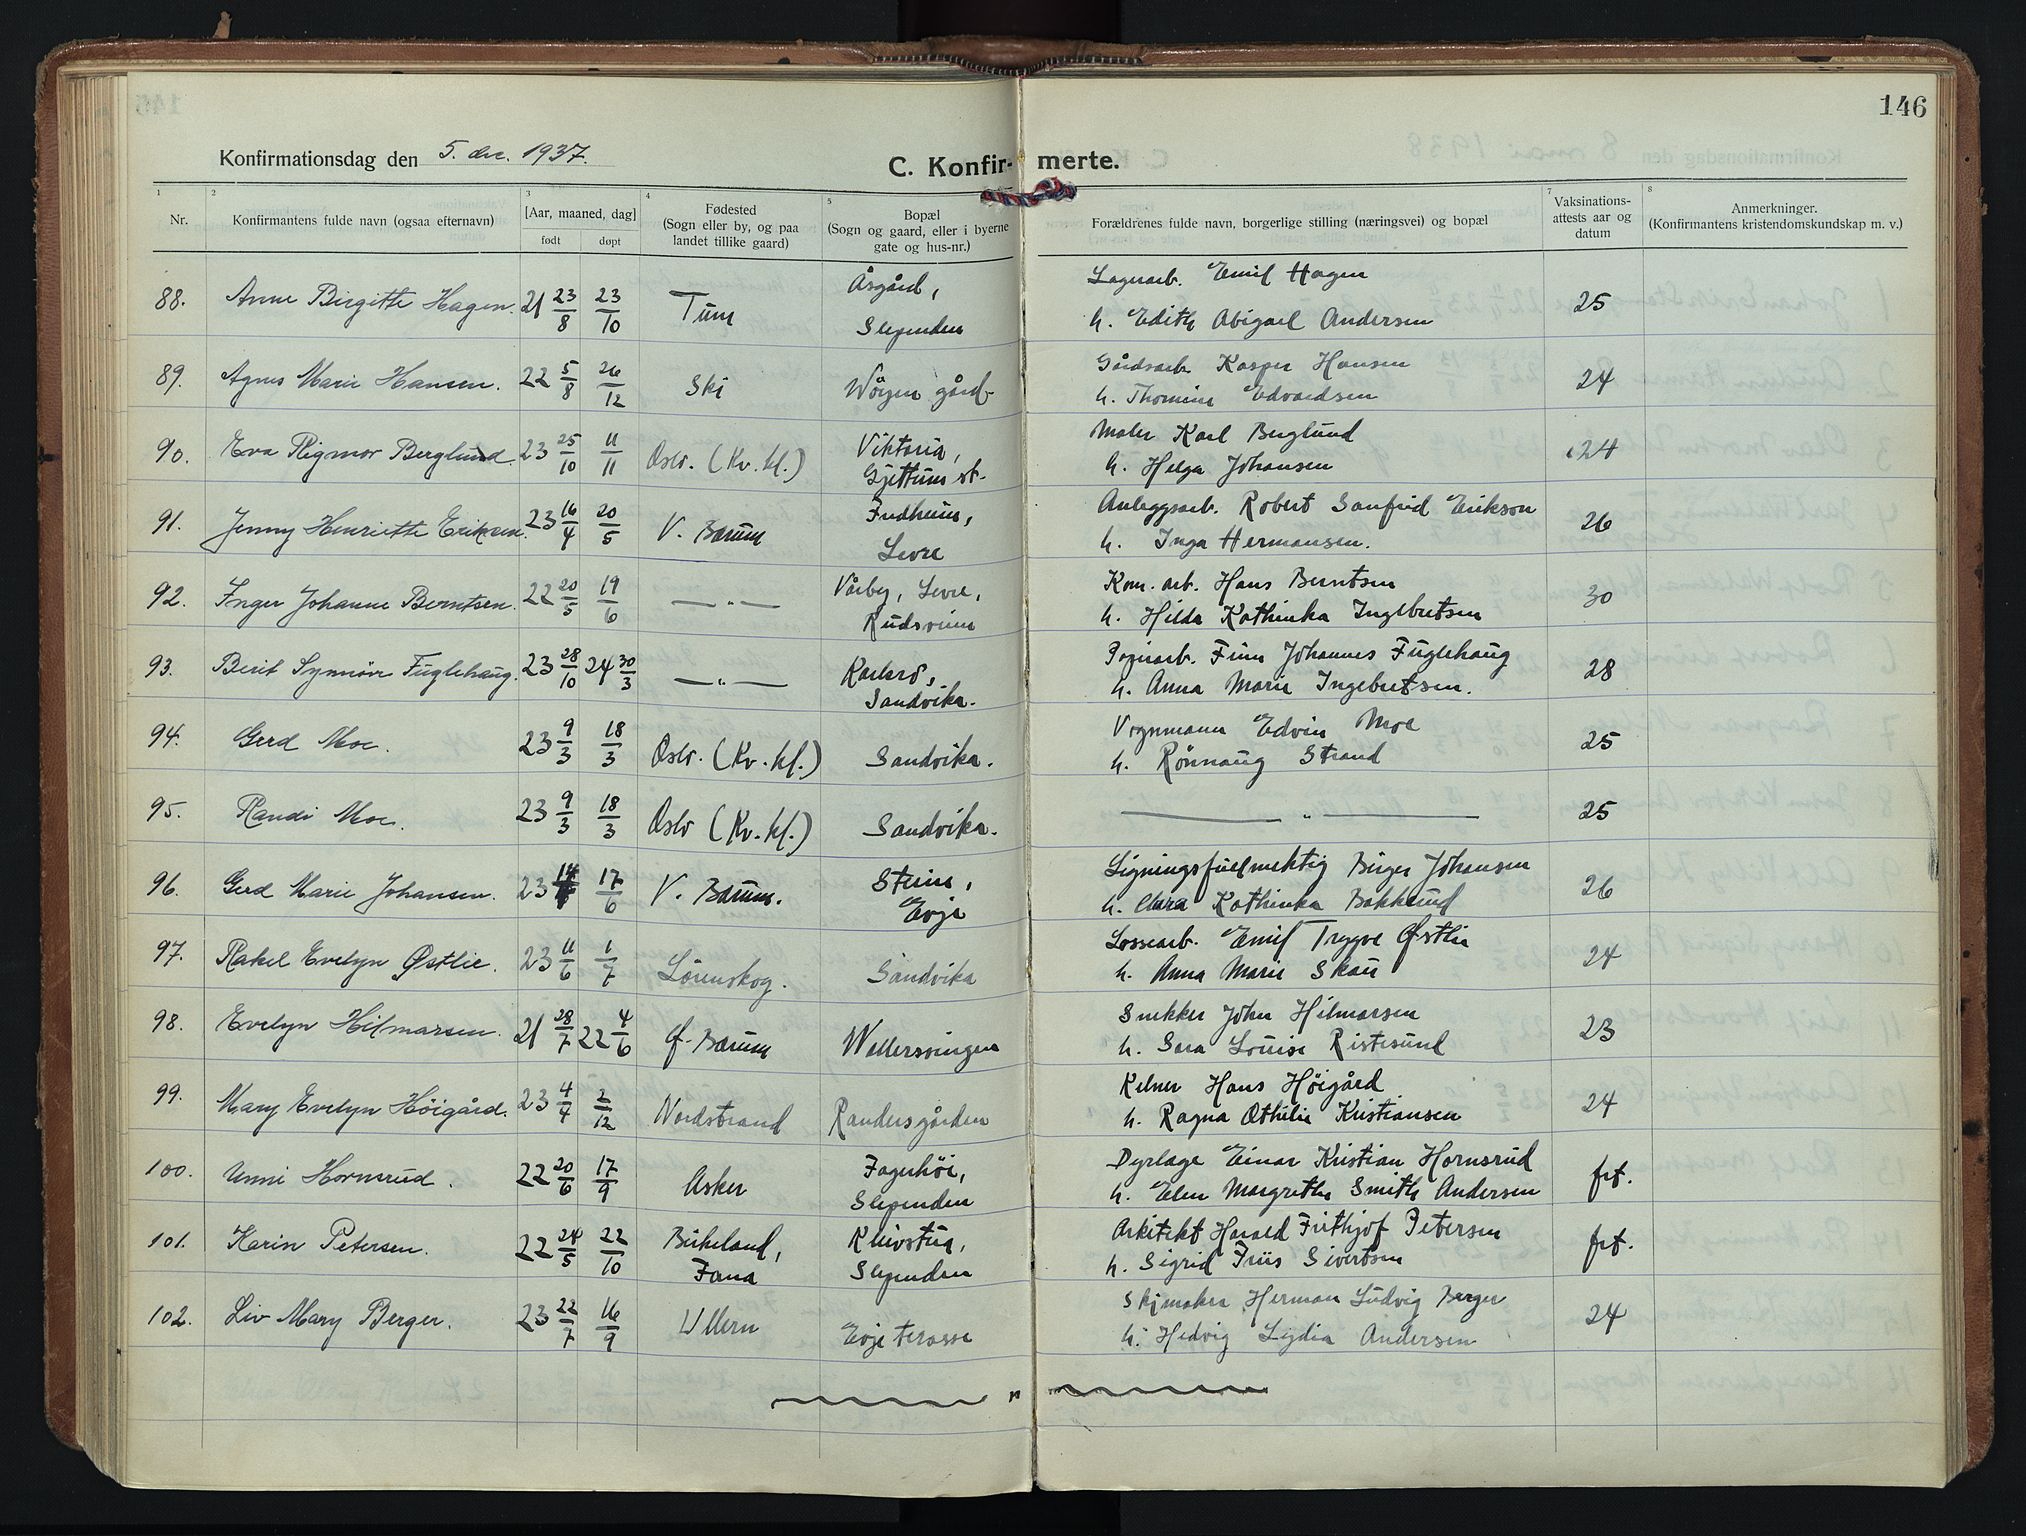 146
Konfirmationsdag den 5. dec. 1937.
C. Konfirmerte.
1 2 3 4 5 7 8
Nr. Konfirmantens fulde navn (ogsaa efternavn) [Aar, maaned, dag] født døpt Fødested (Sogn eller by, og paa landet tillike gaard) Bopæl (Sogn og gaard, eller i byerne gate og hus-nr.) Forældrenes fulde navn, borgerlige stilling (næringsvei) og bopæl Vaksinations-attests aar og datum Anmerkninger. (Konfirmantens kristendomskundskap m. v.)
88. Anne Birgitte Hagen. 21 23/8 23/10 Tune Åsgård, Slependen Lagerarb. Emil Hagen
h. Edith Abigael Andersen 25
89. Agnes Marie Hansen. 22 5/8 26/12 Ski Wøyen gård Gårdsarb. Kasper Hansen
h. Thomine Edvardsen 24
90. Eva Rigmor Berglund. 23 25/10 11/11 Oslo. (Kv. kl.) Viktoria, Gjettum st. Maler Karl Berglund
h. Helga Johansen 24
91. Jenny Henriette Eriksen. 23 16/4 20/5 V. Bærum Fredheim, Levre Anleggsarb. Robert Sanfrid Erikson
h. Inga Hermansen. 26
92. Inger Johanne Berntsen. 22 20/5 19/6 — " — Vårby, Levre, Rudsveien Kom. arb. Hans Berntsen
h. Hilda Kathinka Ingebretsen 30
93. Berit Synnøve Fuglehaug. 23 28/10 24 30/3 — " — Karlsro, Sandvika. Papirarb. Finn Johannes Fuglehaug
h. Anna Marie Ingebretsen. 28
94. Gerd Moe. 23 9/3 18/3 Oslo. (Kv. kl.) Sandvika. Vognmann Edvin Moe
h. Rønnaug Strand 25
95. Randi Moe. 23 9/3 18/3 Oslo (Kv. kl.) Sandvika. — " — 25
96. Gerd Marie Johansen. 23 14 17/6 V. Bærum. Steine, Evje Ligningsfullmektig Birger Johansen
h. Clara Kathinka Bakklund 26
97. Rakel Evelyn Østlie. 23 11/6 1/7 Lørenskog. Sandvika Lossearb. Emil Trygve Østlie
h. Anna Marie Skau 24
98. Evelyn Hilmarsen. 21 28/7 22 4/6 Ø. Bærum Wøllersvingen Snekker John Hilmarsen
h. Sara Louise Ristesund 23
99. Mary Evelyn Høigård. 23 4/4 2/12 Nordstrand Randersgården Kelner Hans Høigård
h. Ragna Othilie Kristiansen 24
100. Unni Hornsrud. 22 20/6 17/9 Asker Fagerhøi, Slependen Dyrlæge Einar Kristian Hornsrud
h. Elen Margrethe Smith Andersen frt.
101. Karin Petersen. 22 24/5 22/10 Birkeland, Fana Kleivstua, Slependen Arkitekt Harald Frithjof Petersen
h. Sigrid Friis Sivertsen frt.
102. Liv Mary Berger. 23 22/7 16/9 Ullern Evje terasse Skjmaker Herman Ludvig Berger
h. Hedvig Lydia Andersen 24